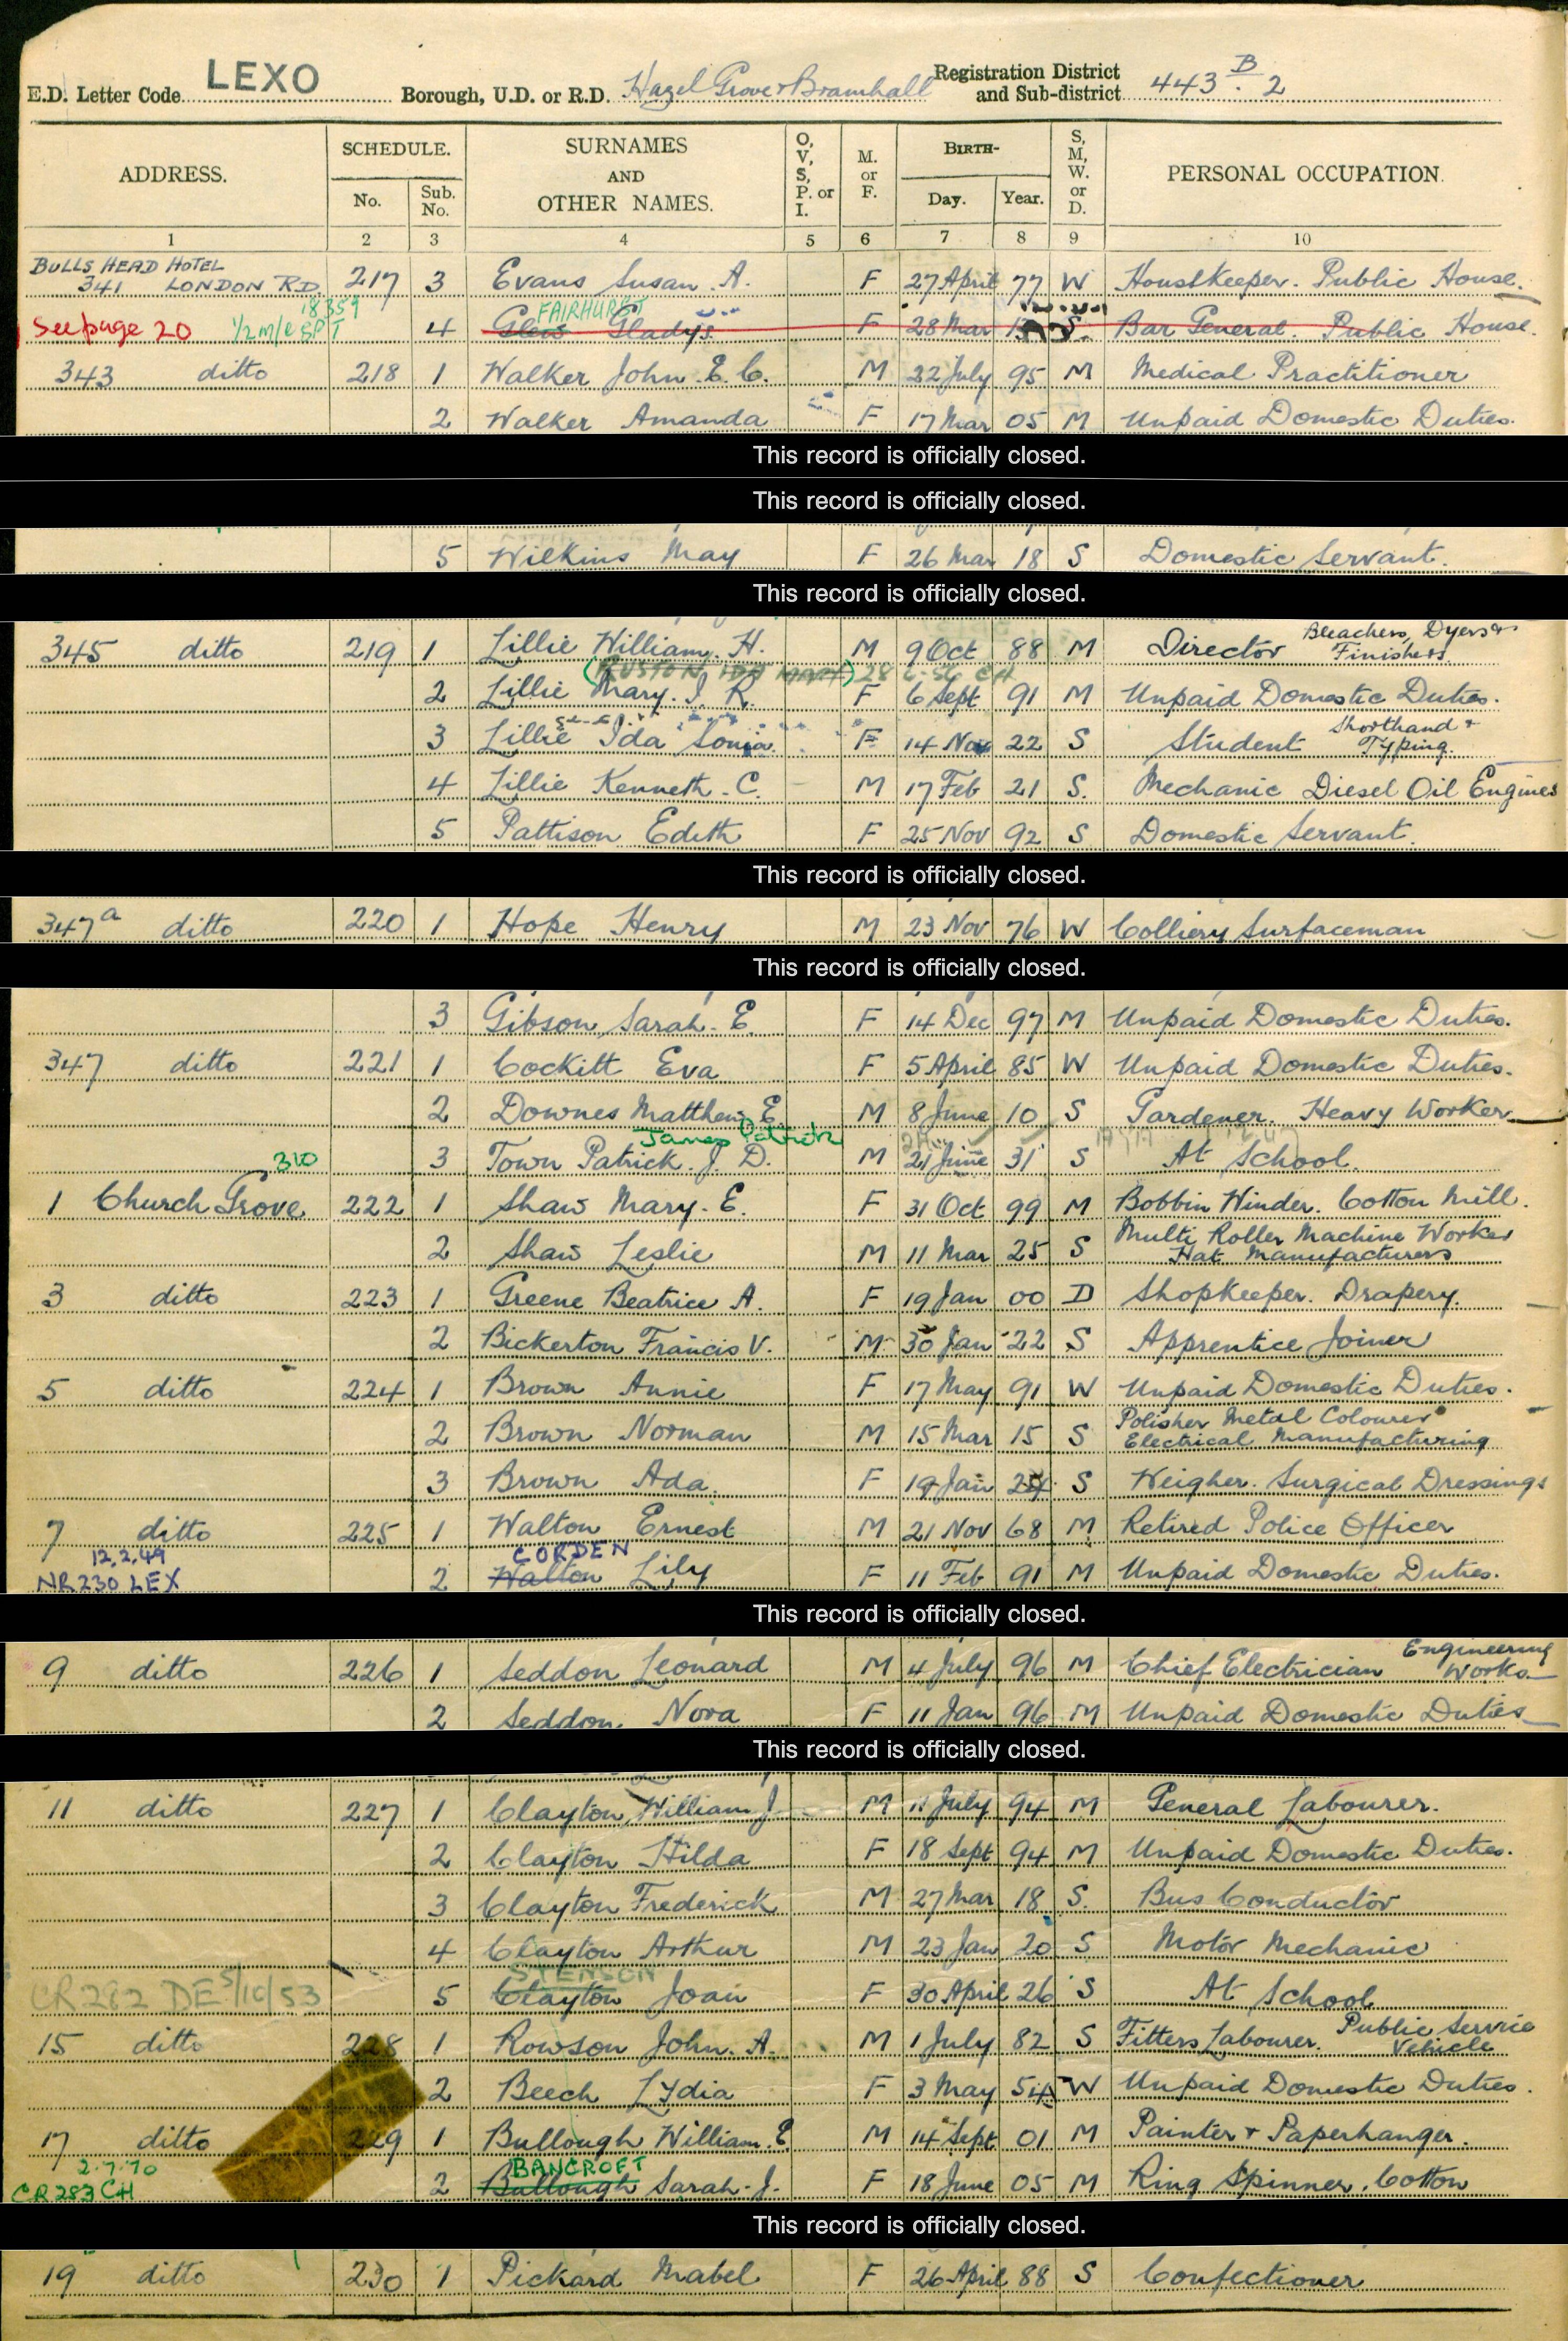 E.D. Letter Code LEXO Borough, U.D. or R.D. Hazel Grove & Bramhall Registration District and Sub-district 443 B. 2
ADDRESS. SCHEDULE. No. Sub. No. SURNAMES AND OTHER NAMES. O, V, S, P. or I. M. or F. BIRTH- Day. Year. S, M, W. or D. PERSONAL OCCUPATION.
1 2 3 4 5 6 7 8 9 10
BULLS HEAD HOTEL
341 LONDON RD. 217 3 Evans Susan A. F 27 April 77 W Housekeeper. Public House.
18359 FAIRHURST
See page 20 1/2 M/C SPT 4 Gladys F 28 Mar S Bar General. Public House.
343 ditto 218 1 Walker John. E. C. M 22 July 95 M Medical Practitioner
2 Walker Amanda F 17 Mar 05 M Unpaid Domestic Duties.
This record is officially closed.
This record is officially closed.
5 Wilkins May F 26 Mar 18 S Domestic Servant.
This record is officially closed.
345 ditto 219 1 Lillie William. H. M 9 Oct 88 M Director Bleachers, Dyers & Finishers
(RUSTON IDA MARY) 28 6-56 CH
2 Lillie Mary. I. R. F 6 Sept 91 M Unpaid Domestic Duties.
3 Lillie Ida Sonia. F 14 Nov 22 S Student Shorthand & Typing.
4 Lillie Kenneth. C. M 17 Feb 21 S. Mechanic Diesel Oil Engines
5 Pattison Edith F 25 Nov 92 S Domestic Servant.
This record is officially closed.
347a ditto 220 1 Hope Henry M 23 Nov 76 W Colliery Surfaceman
This record is officially closed.
3 Gibson Sarah. E F 14 Dec 97 M Unpaid Domestic Duties.
347 ditto 221 1 Cockitt Eva F 5 April 85 W Unpaid Domestic Duties.
2 Downes Matthew E. M 8 June 10 S Gardener. Heavy Worker
James Patrick
310 3 Town Patrick. J. D. M 21 June 31 S At School.
1 Church Grove 222 1 Shaw Mary. E. F 31 Oct 99 M Bobbin Winder. Cotton Mill.
2 Shaw Leslie M 11 Mar 25 S Multi Roller Machine Worker Hat Manufacturers
3 ditto 223 1 Greene Beatrice A. F 19 Jan 00 D Shopkeeper. Drapery.
2 Bickerton Francis V. M 30 Jan 22 S Apprentice Joiner
5 ditto 224 1 Brown Annie F 17 May 91 W Unpaid Domestic Duties.
2 Brown Norman M 15 Mar 15 S Polisher Metal Colourer Electrical Manufacturing
3 Brown Ada. F 19 Jan 24 S Weigher. Surgical Dressings
7 ditto 225 1 Walton Ernest M 21 Nov 68 M Retired Police Officer
12.2.49 CORDEN
NR230 LEX 2 Walton Lily F 11 Feb 91 M Unpaid Domestic Duties.
This record is officially closed.
9 ditto 226 1 Seddon Leonard M 4 July 96 M Chief Electrician Engineering Works.
2 Seddon. Nora F 11 Jan 96 M Unpaid Domestic Duties
This record is officially closed.
11 ditto 227 1 Clayton William J M 11 July 94 M General Labourer.
2 Clayton Hilda F 18 Sept 94 M Unpaid Domestic Duties.
3 Clayton Frederick M 27 Mar 18 S. Bus Conductor
4 Clayton Arthur M 23 Jan 20 S Motor Mechanic
STENSON
CR282 DE 5/10/53 5 Clayton Joan F 30 April 26 S At School
15 ditto 228 1 Rowson John. A. M 1 July 82 S Fitters Labourer. Public Service Vehicle
2 Beech Lydia F 3 May 54 W Unpaid Domestic Duties.
17 ditto 229 1 Bullough William. E. M 14 Sept 01 M Painter & Paperhanger.
2.7.70 BANCROFT
CR283 CH 2 Bullough Sarah. J. F 18 June 05 M Ring Spinner. Cotton
This record is officially closed.
19 ditto 230 1 Pickard Mabel F 26 April 88 S Confectioner